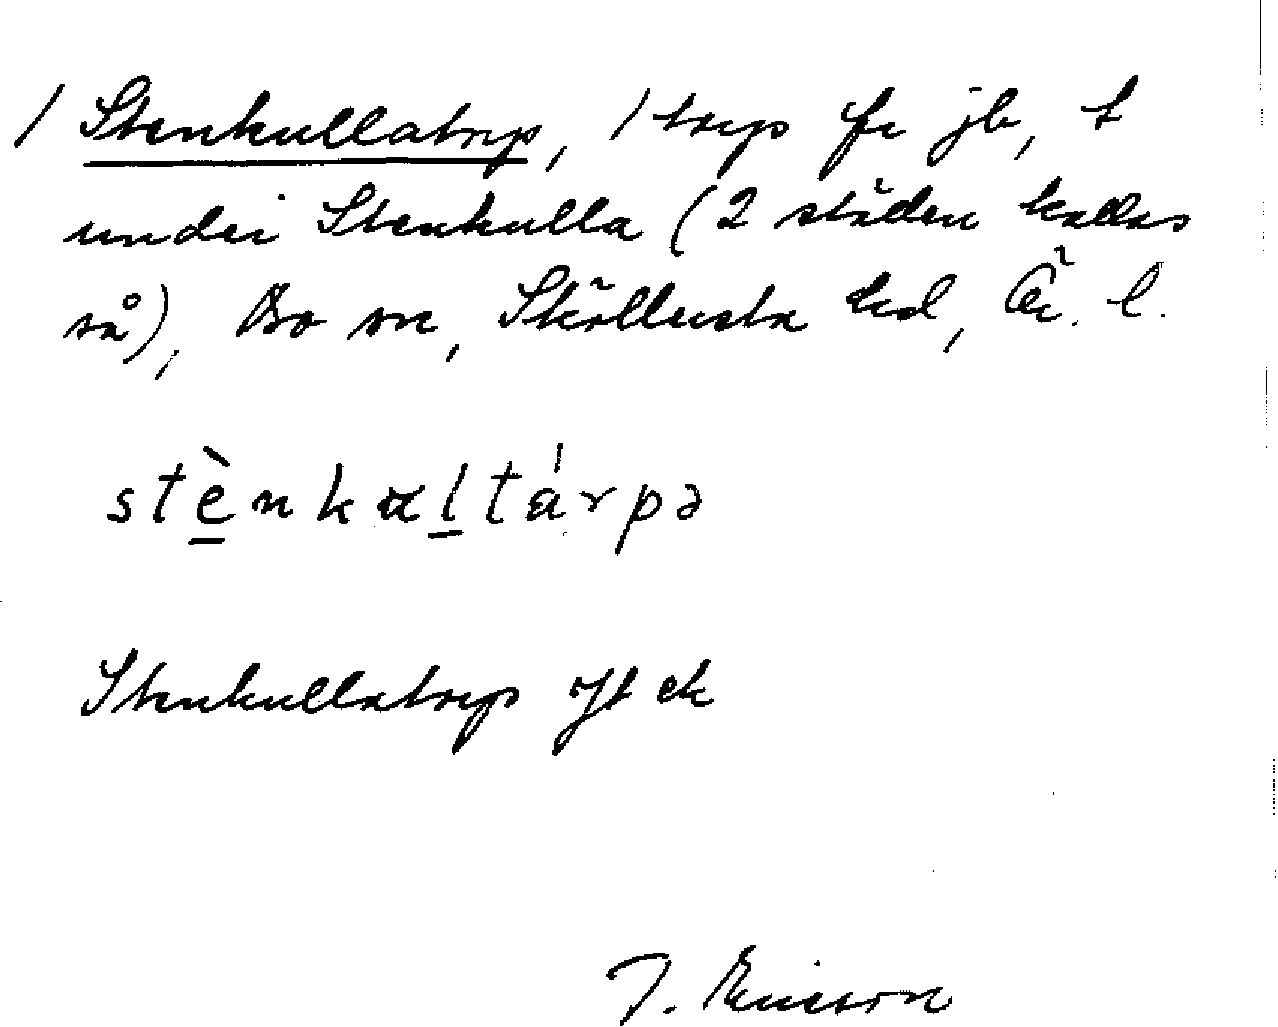 / Stenkullatrp, / torp fr jb, t
under Stenkulla (2 ställen kallas
så), Bo sn, Sköllersta hd, Ö. l.
stènkɑltárpə
Stenkullatorp Jfl ek
J. Ericson